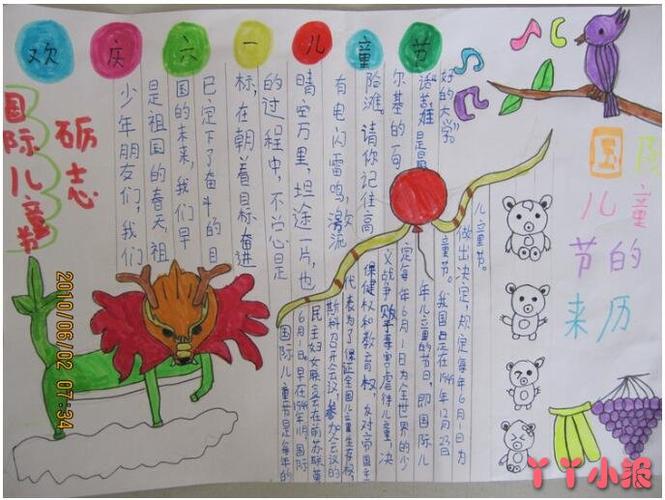 欢庆六一儿童节
国际儿童节
砺志
少年朋友们,我们
是祖国的春天,祖
国的未来,我们早
已定下了奋斗的目
标,在朝着目标奋进
的过程中,不总是
晴空万里,坦途一片,也
有电闪雷鸣,激流
险滩。请你记住高
尔基的一句
话苦难是最
好的大学。
国际
儿童
节的
来历
国际儿童节是每年的
6月1日。早在1949年11月,国际
民主妇女联合会在前苏联莫
斯科召开会议,参加会议的
代表为了保证全国儿童生存权、
保健权和教育权,反对帝国主
义战争贩子毒害虐待儿童,决
定每年6月1日为全世界的少
年儿童的节日,即国际儿
童节。我国占于1949年12月23日
做出决定,规定每年6月1日为
儿童节。
2010/06/02 07:34
丫丫小报